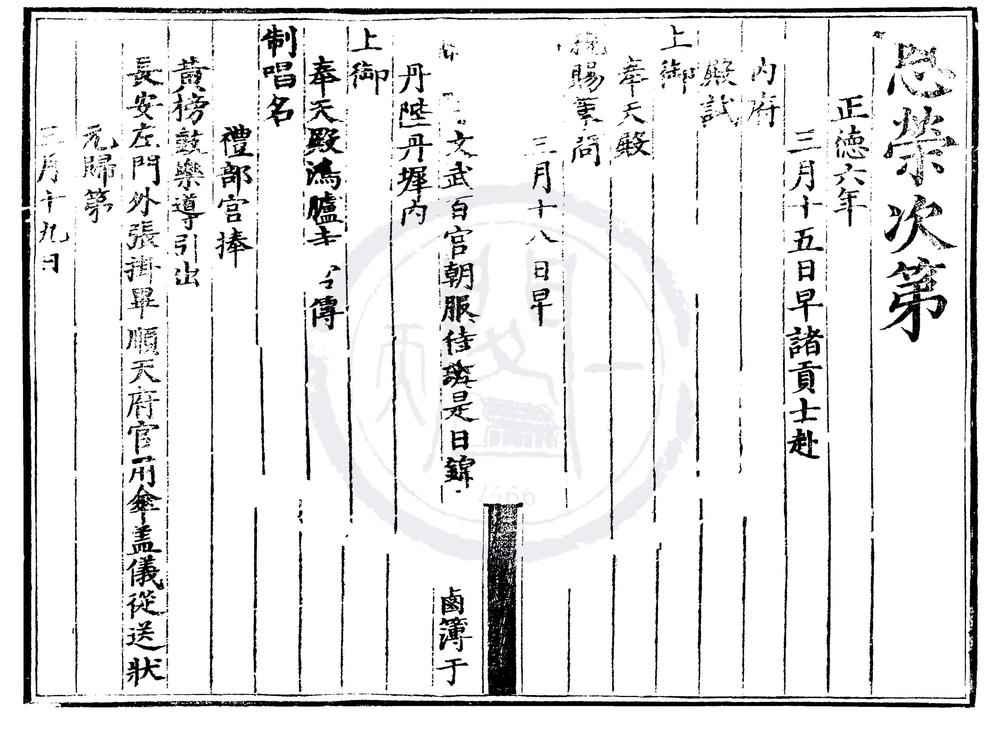 恩榮次第
正德六年
三月十五日早諸貢士赴
內府
殿試
上御
奉天殿
親賜策問
三月十八日早
文武百官朝服侍班是日錦
鹵簿于
丹陛丹墀內
上御
奉天殿鴻臚寺 傳
制唱名
禮部官捧
黃榜鼓樂導引出
長安左門外張掛畢順天府官用傘盖儀從送狀
元歸第
三月十九日
天一閣
1566